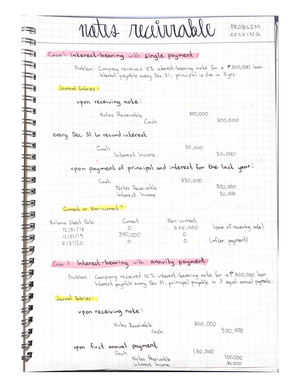 notes receivable
PROBLEM
SOLVING
Case 1: Interest-bearing with single payment
Problem: Company received 10% interest-bearing note for a ₱300,000 loan.
Interest payable every Dec 31, principal is due in 3 yrs
Journal Entries:
upon receiving note:
Notes Receivable 300,000
Cash 300,000
every Dec 31 to record interest
Cash 30,000
Interest Income 30,000
upon payment of principal and interest for the last year:
Cash 330,000
Notes Receivable 300,000
Interest Income 30,000
Current or Non-current?
Balance Sheet Date Current Non-current
12/31/18 0 300,000 (year of receiving note)
12/31/19 300,000 0
12/31/20 0 0 (after payment)
Case 2: Interest-bearing with annuity payment
Problem: Company received 10% interest-bearing note for a ₱300,000 loan.
Interest payable every Dec 31, principal payable in 3 equal annual payments.
Journal Entries:
upon receiving note:
Notes Receivable 300,000
Cash 300,000
upon first annual payment
Cash 130,000
Notes Receivable 100,000
Interest Income 30,000